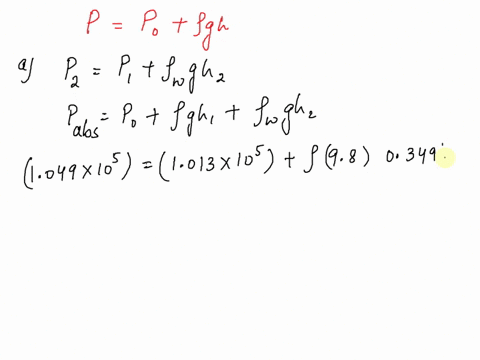 P = P₀ + ρgh
a) P₂ = P₁ + ρ_w gh₂
P_abs = P₀ + ρgh₁ + ρ_w gh₂
(1.049 × 10⁵) = (1.013 × 10⁵) + ρ (9.8) 0.349